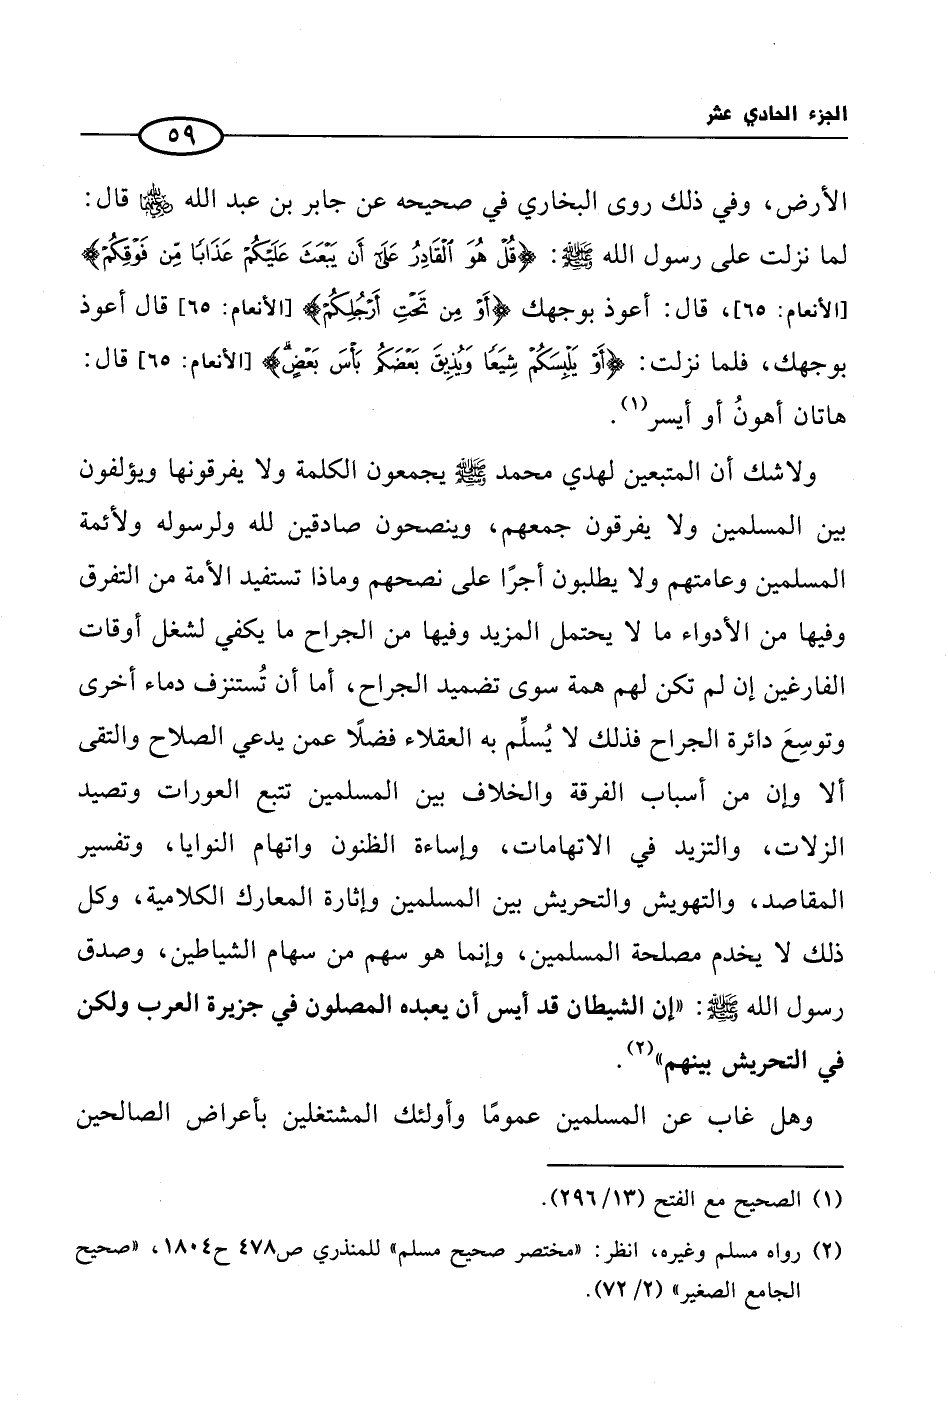 الجزء الحادي عشر
٥٩
الأرض، وفي ذلك روى البخاري في صحيحه عن جابر بن عبد الله رضي الله عنه قال:
لما نزلت على رسول الله ﷺ: ﴿قُلْ هُوَ ٱلْقَادِرُ عَلَىٰٓ أَن يَبْعَثَ عَلَيْكُمْ عَذَابًا مِّن فَوْقِكُمْ﴾
[الأنعام: ٦٥]، قال: أعوذ بوجهك ﴿أَوْ مِن تَحْتِ أَرْجُلِكُمْ﴾ [الأنعام: ٦٥] قال أعوذ
بوجهك، فلما نزلت: ﴿أَوْ يَلْبِسَكُمْ شِيَعًا وَيُذِيقَ بَعْضَكُم بَأْسَ بَعْضٍۗ﴾ [الأنعام: ٦٥] قال:
هاتان أهونُ أو أيسر(١).
ولاشك أن المتبعين لهدي محمد ﷺ يجمعون الكلمة ولا يفرقونها ويؤلفون
بين المسلمين ولا يفرقون جمعهم، وينصحون صادقين لله ولرسوله ولأئمة
المسلمين وعامتهم ولا يطلبون أجرًا على نصحهم وماذا تستفيد الأمة من التفرق
وفيها من الأدواء ما لا يحتمل المزيد وفيها من الجراح ما يكفي لشغل أوقات
الفارغين إن لم تكن لهم همة سوى تضميد الجراح، أما أن تُستنزف دماء أخرى
وتوسِعَ دائرة الجراح فذلك لا يُسلِّم به العقلاء فضلًا عمن يدعي الصلاح والتقى
ألا وإن من أسباب الفرقة والخلاف بين المسلمين تتبع العورات وتصيد
الزلات، والتزيد في الاتهامات، وإساءة الظنون واتهام النوايا، وتفسير
المقاصد، والتهويش والتحريش بين المسلمين وإثارة المعارك الكلامية، وكل
ذلك لا يخدم مصلحة المسلمين، وإنما هو سهم من سهام الشياطين، وصدق
رسول الله ﷺ: «إن الشيطان قد أيس أن يعبده المصلون في جزيرة العرب ولكن
في التحريش بينهم»(٢).
وهل غاب عن المسلمين عمومًا وأولئك المشتغلين بأعراض الصالحين
(١) الصحيح مع الفتح (١٣/ ٢٩٦).
(٢) رواه مسلم وغيره، انظر: «مختصر صحيح مسلم» للمنذري ص٤٧٨ ح١٨٠٤، «صحيح
الجامع الصغير» (٢/ ٧٢).